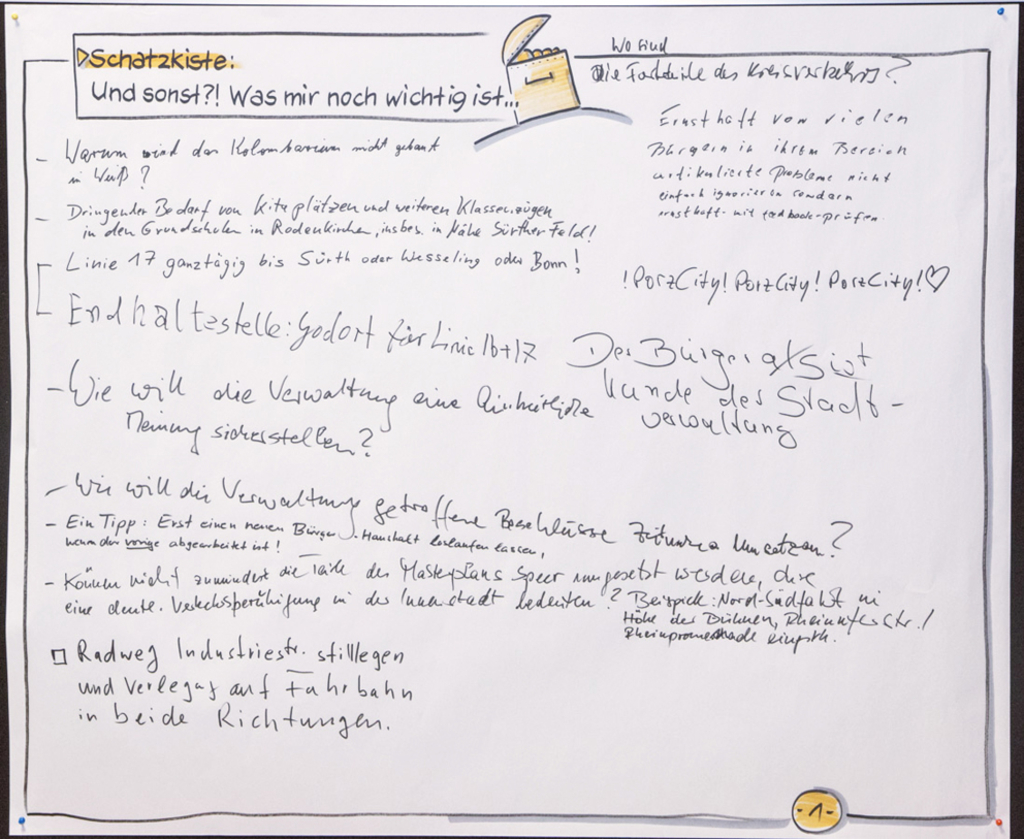 Schatzkiste:
Und sonst?! Was mir noch wichtig ist...
- Warum wird das Kolumbarium nicht gebaut
in Weiß?
- Dringender Bedarf von Kitaplätzen und weiteren Klassenzügen
in den Grundschulen in Rodenkirchen, insbes. in Nähe Sürther Feld!
Linie 17 ganztägig bis Sürth oder Wesseling oder Bonn!
Endhaltestelle: Godorf für Linie 16+17
- Wie will die Verwaltung eine Einheitliche
Meinung sicherstellen?
- Wie will die Verwaltung getroffene Beschlüsse Zeitnah Umsetzen?
- Ein Tipp: Erst einen neuen Bürger-Haushalt loslaufen lassen,
wenn der vorige abgearbeitet ist!
- Können nicht zumindest die Teile des Masterplans Speer umgesetzt werden, die
eine deutl. Verkehrsberuhigung in der Innenstadt bedeuten? Beispiele: Nord-Südfahrt in
Höhe der Bühnen, Rheinuferstr./
Rheinpromenade
Radweg Industriestr. stilllegen
und Verlegung auf Fahrbahn
in beide Richtungen.
Wo sind
die Vorteile des Kreisverkehrs?
Ernsthaft von vielen
Bürgern in ihrem Bereich
artikulierte Probleme nicht
einfach ignorieren sondern
ernsthaft - mit feedback - prüfen.
!PorzCity! PorzCity! PorzCity!♡
Der Bürger ist
Kunde der Stadt-
verwaltung
-1-